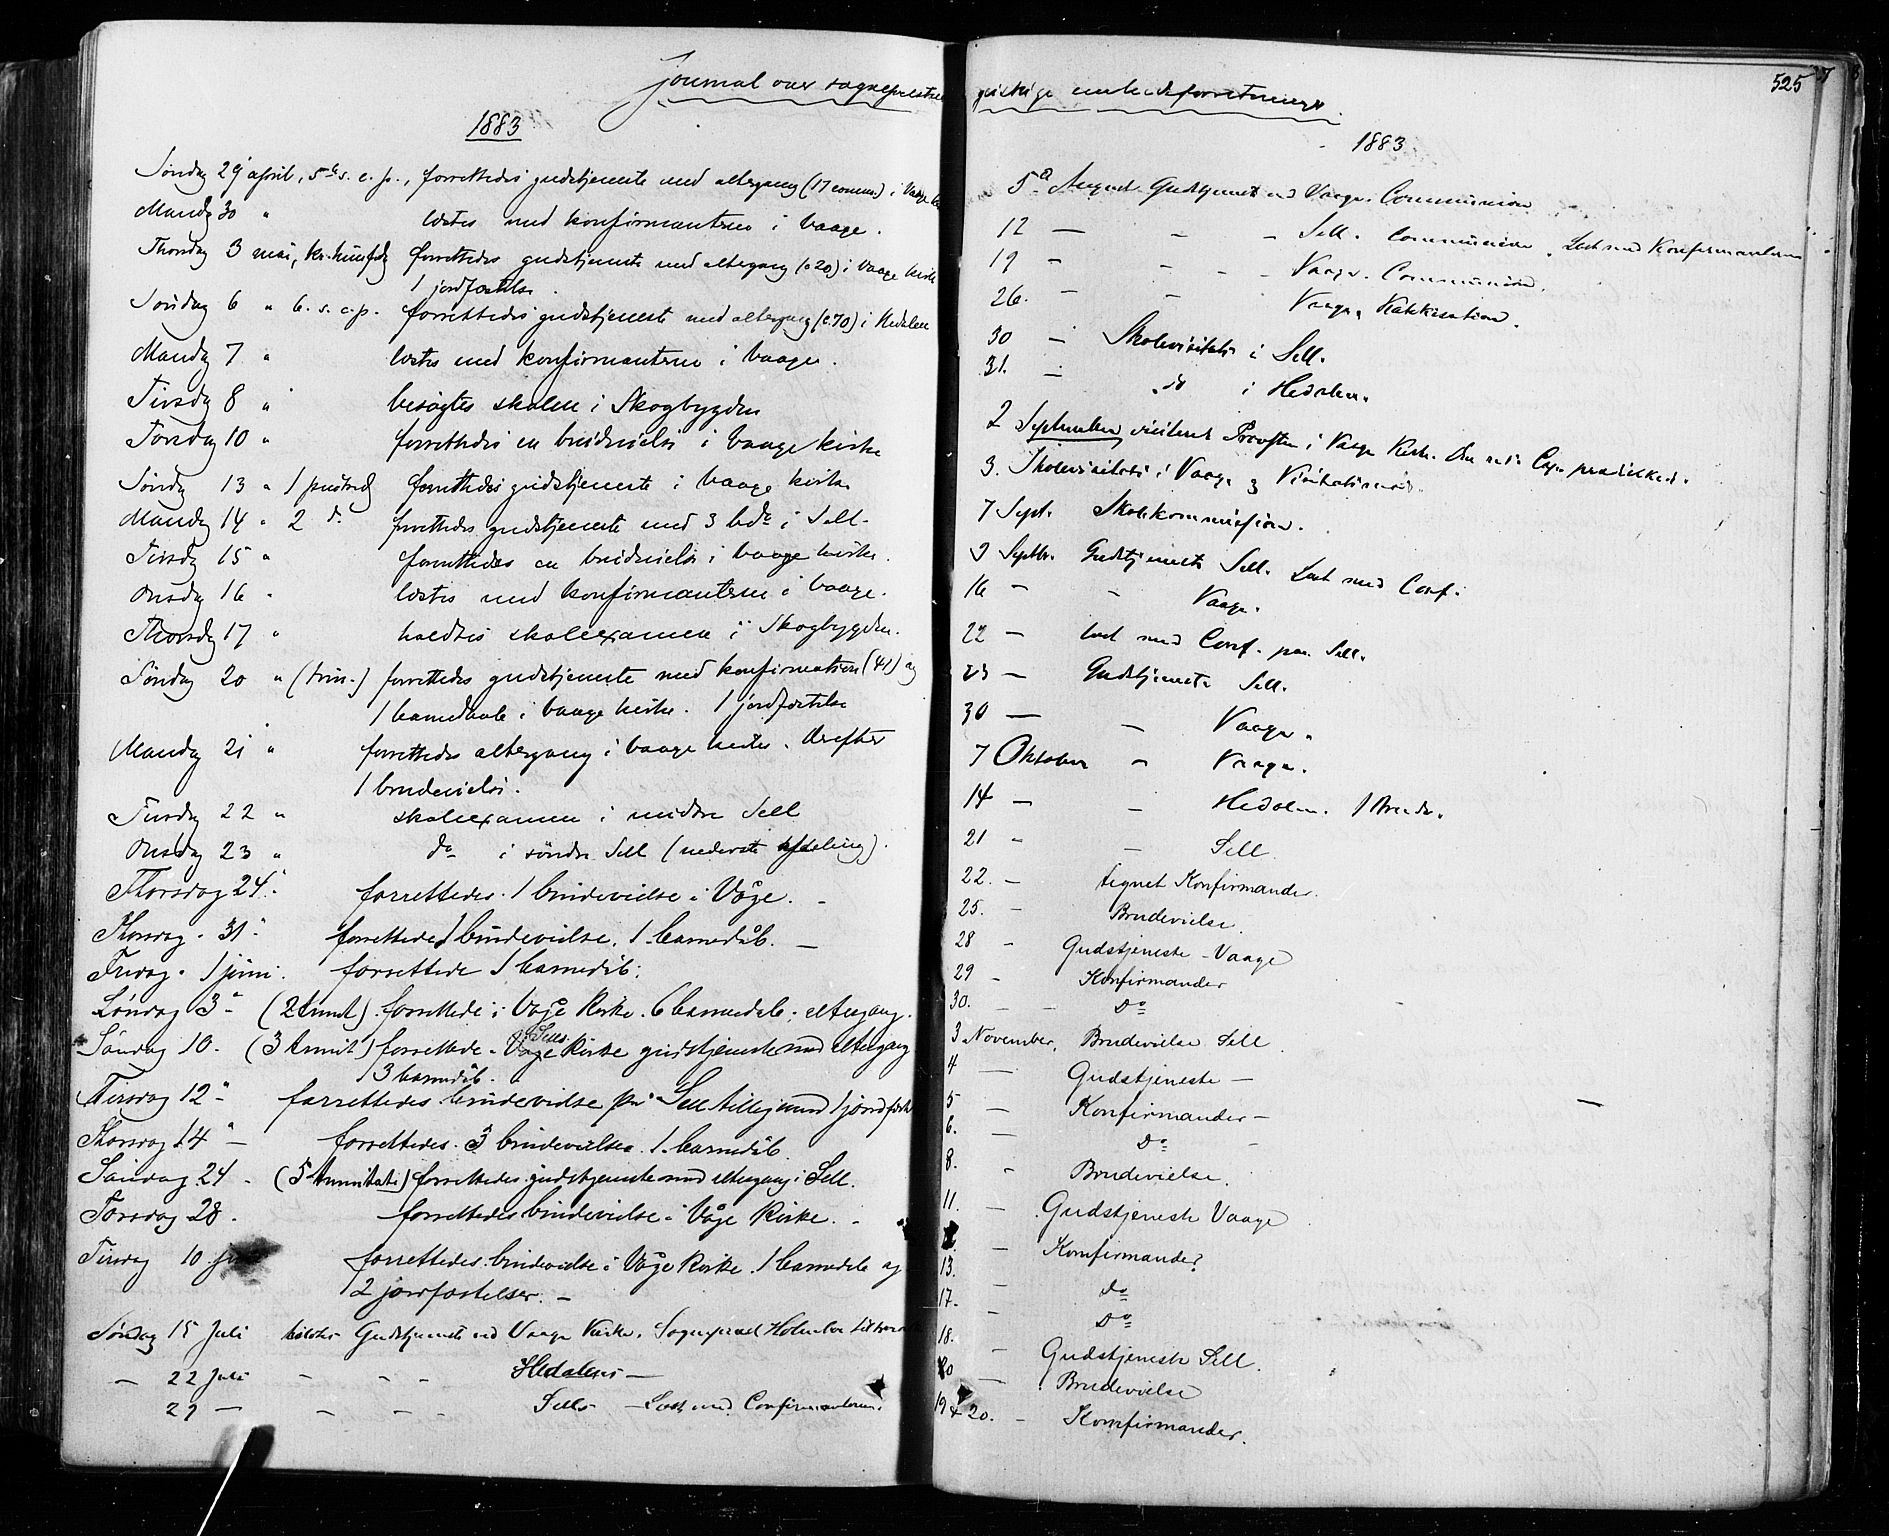 journal over sognepræstens
1883
Søndag 29 april, 5te s. e. p., forrettedes gudstjeneste med altergang (17 comm.) i Vaage
Mandag 30 " læstes med konfirmanterne i Vaage.
Thorsdag 3 mai, kr. himfdg forrettedes gudstjeneste med altergang (c 20) i Vaage kirke
1 jordfæstelse.
Søndag 6 " 6. s. e. p. forrettedes gudstjeneste med altergang (c. 70) i Hedalen
Mandag 7 " læstes med konfirmanterne i Vaage.
Tirsdag 8 " besøgtes skolen i Skogbygden
Torsdag 10 " forrettedes en brudevielse i Vaage kirke
Søndag 13 " 1 pinsedag forrettedes gudstjeneste i Vaage kirke
Mandag 14 " 2 do forrettedes gudstjeneste med 3 bd i Sell.
Tirsdg 15 " forrettedes en brudevielse i Vaage kirke.
Onsdag 16 " læstes med konfirmanterne i Vaage.
Thorsdg 17 " holdtes skoleexamen i Skogbygden.
Søndag 20 " (trin.) forrettedes gudstjeneste med konfirmation (41) og
1 barnedaab i Vaage kirke. 1 jordfæstelse
Mandag 21 " forrettedes altergang i Vaage kirke, derefter
1 brudevielse.
Tirsdag 22 " skoleexamen i nordre Sell
Onsdag 23 " do i søndre Sell (nederste afdeling).
Thorsdag 24 " forrettedes 1 brudevielse i Våge. –
Thorsdag " 31 " forrettedes 1 brudevielse, 1 barnedåb. —
Fredag " 1 juni. forrettede 1 barnedåb.
Søndag 3 " (2 s. trinit) forrettede i Våge Kirke. 6 barnedåb. altergang.
Søndag 10. (3 trinit) forrettede i Våge Sells Kirke gudstjeneste med altergang
3 barnedåb.
Tirsdag 12 " forrettedes brudevielse på Sell tilligemed 1 jordfæst
Thorsdag 14 " — forrettedes 3 brudevielser. 1 barnedåb.
Søndag 24 - (5 trinitatis) forrettedes gudstjeneste med altergang i Sell.
Torsdag 28. forrettedes brudevielse i Våge Kirke. –
Tirsdag 10 forrettedes brudevielse i Våge Kirke. 1 barnedåb og
2 jordfæstelser. –
Søndag 15 Juli holdtes Gudstjeneste ved Vaage Kirke. Sognepræst
— 22 Juli - - - Hedalens —
29 — - - - Sells — Læst med Confirmanterne.
geistlige embedsforretninger
525
1883
5te August Gudstjeneste ved Vaage. Communion
12 — - - Sell. Communion. Læst med Konfirmanterne
19 - - - Vaage. Communion.
26. - - Vaage, Katekisation.
30 - Skolevisitats i Sell.
31. - do i Hedalen.
2 September visiterede Provsten i Vaage Kirke. Den res. Cap. prædikede.
3. Skolevisitats i Vaage &
7 Sept. Skolekommission.
9 Septbr. Gudstjeneste Sell. Læst med Conf.
16 - - Vaage.
22 — læst med Conf. paa Sell.
23 — Gudstjeneste Sell.
30 — - Vaage.
7 Oktober - Vaage.
14 — - Hedalen. 1 Brudv.
21 " - Sell.
22. - tegnet Konfirmander.
25. - Brudevielse.
28 - Gudstjeneste - Vaage
29 - Konfirmander
30. - - Do
3 November. Brudevielse Sell
4 — Gudstjeneste —
5 — Konfirmander —
6. — Do -
8. - Brudevielse.
11. - Gudstjeneste Vaage
— Konfirmander
13. - do
17. - Do
18. - Gudstjeneste Sell.
— Brudevielse
19 & 20. - Konfirmander.